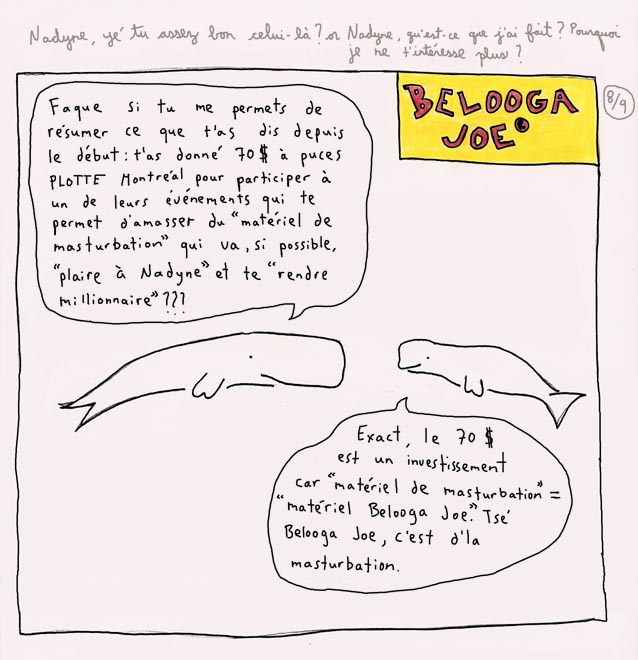 Nadyne, yé tu assez bon celui-là? or Nadyne, qu'est-ce que j'ai fait? Pourquoi
je ne t'intéresse plus?
BELOOGA
JOE
8/9
Faque si tu me permets de
résumer ce que t'as dis depuis
le début: t'as donné 70$ à puces
PLOTTE Montréal pour participer à
un de leurs événements qui te
permet d'amasser du "matériel de
masturbation" qui va, si possible,
"plaire à Nadyne" et te "rendre
millionnaire"???
Exact, le 70 $
est un investissement
car "matériel de masturbation" =
"matériel Belooga Joe". Tsé
Belooga Joe, c'est d'la
masturbation.